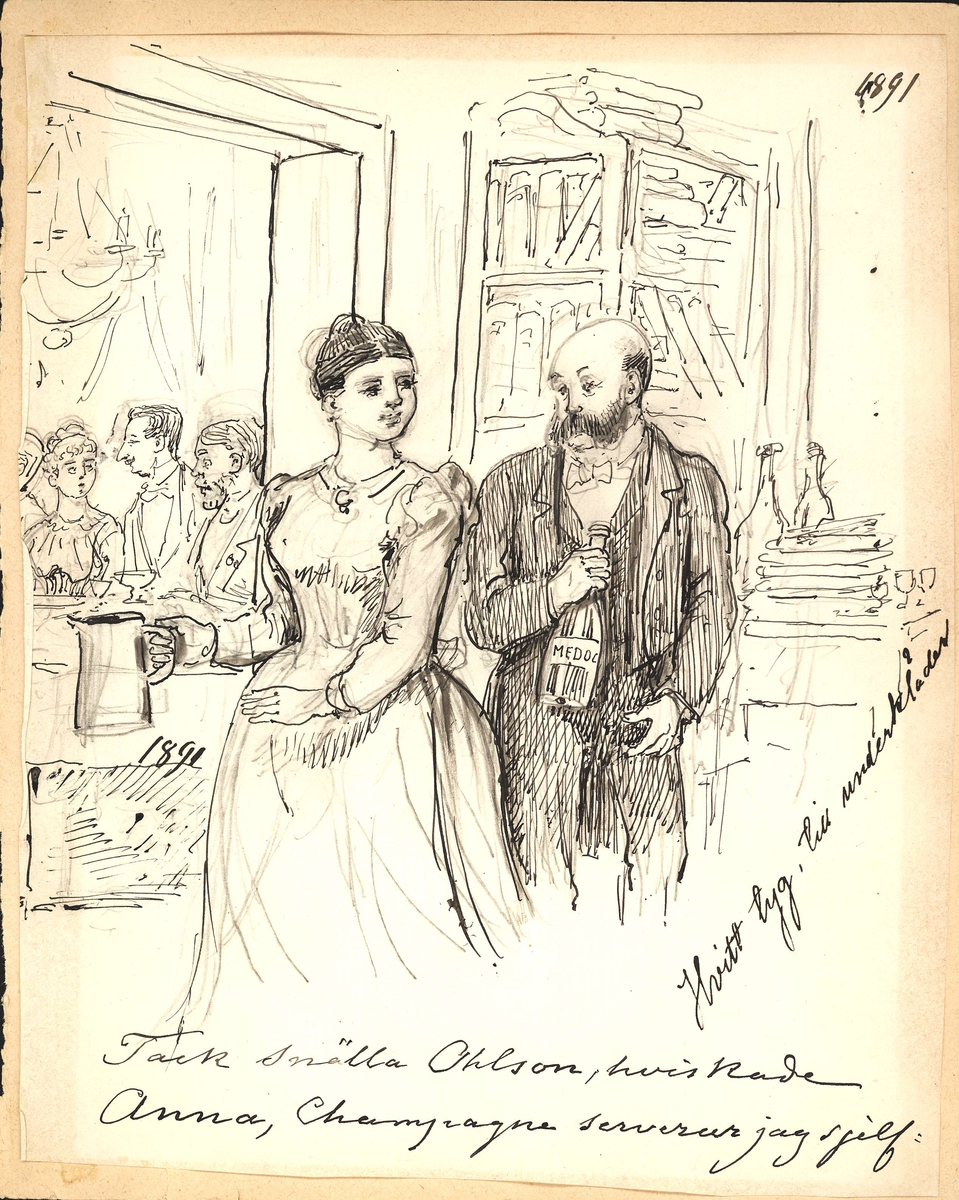 1891
MEDOC
1891
Hvitt tyg, till underkläder
Tack snälla Ohlson, hviskade
Anna, Champagne serverar jag sjelf: